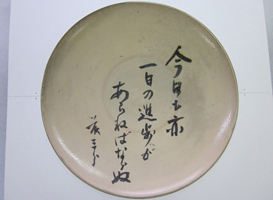 今日も亦
一日の進歩が
あらねばならぬ